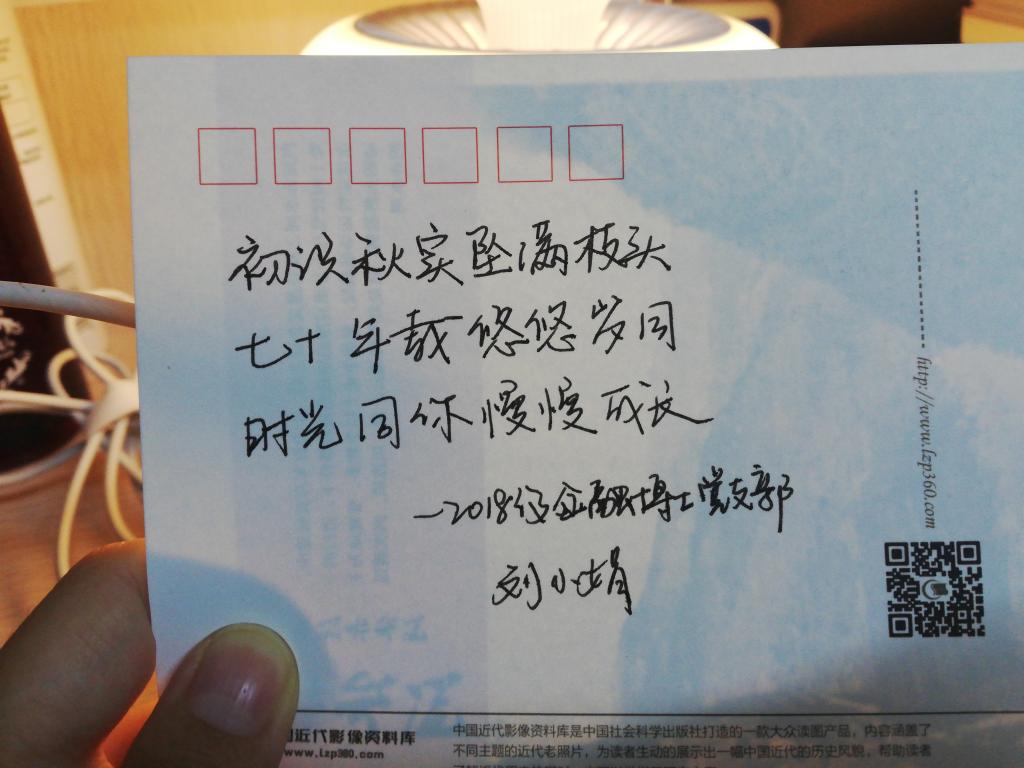 初识秋实坠满枝头
七十年载悠悠岁同
时光同你慢慢成长
—2018级金融博士党支部
刘小娟
http://www.lzp360.com
近代影像资料库
www.lzp360.com
中国近代影像资料库是中国社会科学出版社打造的一款大众读图产品，内容涵盖了
不同主题的近代老照片，为读者生动的展示出一幅中国近代的历史风貌，帮助读者